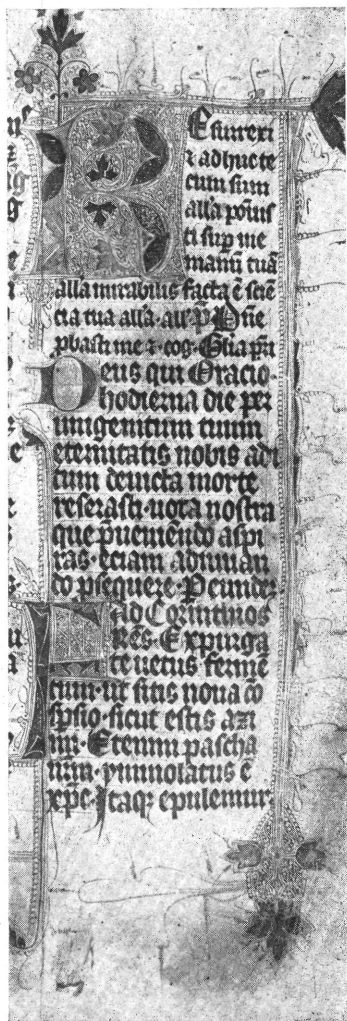 Esurrexi
⁊ adhuc te
cum sum
alla poſuis
ti sup me
manū tuā
alla mirabilis facta ē sciē
cia tua alla· all' p̄ Dn̄e
pbasti me ⁊· cog· Glia pr̄i
Deus qui Oracio·
hodierna die per
unigenitum tuum
eternitatis nobis adi
tum deuicta morte
reserasti· uota nostra
que p̄ueniendo aspi
ras· eciam adiuuan
do ꝓsequere· P eundē·
Ad Corintinos
Fr̄es· Expurga
te uetus fermē
tum· ut sitis noua cō
spſio· sicut estis azi
mi· Etenim pascha
nr̄m· ymmolatus ē
xp̄c· Itaqꝫ epulemur·